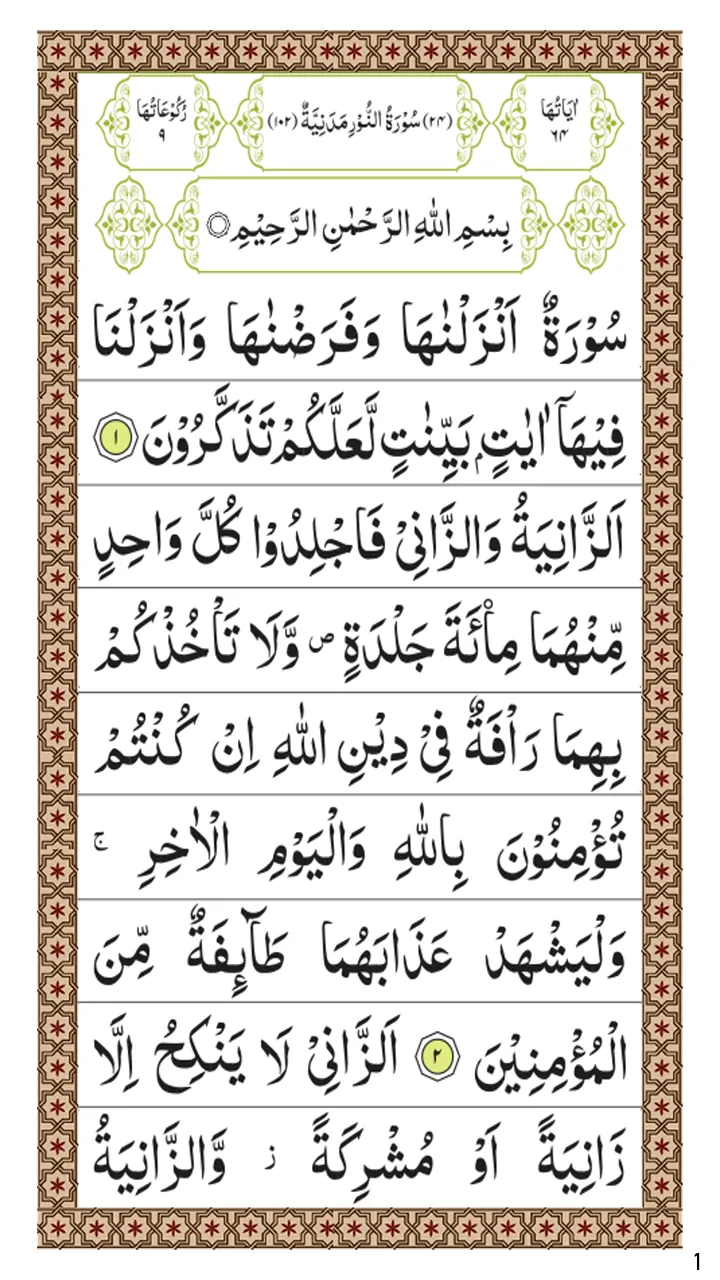 اٰيَاتُهَا
٦٤
(٢٤) سُوْرَةُ النُّوْرِ مَدَنِيَّةٌ (١٠٢)
رُكُوْعَاتُهَا
٩
بِسْمِ اللّٰهِ الرَّحْمٰنِ الرَّحِيْمِ
سُوْرَةٌ اَنْزَلْنٰهَا وَفَرَضْنٰهَا وَاَنْزَلْنَا
فِيْهَآ اٰيٰتٍۭ بَيِّنٰتٍ لَّعَلَّكُمْ تَذَكَّرُوْنَ ١
اَلزَّانِيَةُ وَالزَّانِيْ فَاجْلِدُوْا كُلَّ وَاحِدٍ
مِّنْهُمَا مِائَةَ جَلْدَةٍ ص وَّلَا تَاْخُذْكُمْ
بِهِمَا رَاْفَةٌ فِيْ دِيْنِ اللّٰهِ اِنْ كُنْتُمْ
تُؤْمِنُوْنَ بِاللّٰهِ وَالْيَوْمِ الْاٰخِرِ ج
وَلْيَشْهَدْ عَذَابَهُمَا طَآئِفَةٌ مِّنَ
الْمُؤْمِنِيْنَ ٢ اَلزَّانِيْ لَا يَنْكِحُ اِلَّا
زَانِيَةً اَوْ مُشْرِكَةً ز وَّالزَّانِيَةُ
1